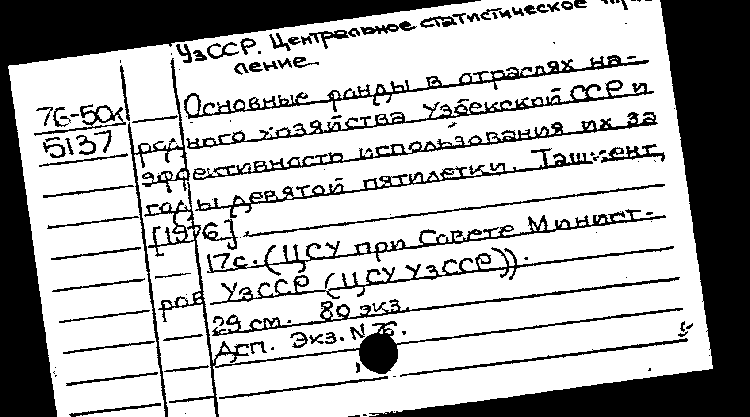 УзССР. Центральное статистическое
ление.
76-50к
5137
Основные фонды в отраслях на-
родного хозяйства Узбекской ССР и
эффективность использования их за
годы девятой пятилетки. Ташкент,
[1976].
17с. (ЦСУ при Совете Минист-
ров УзССР (ЦСУ УзССР)).
29 см. 80 экз.
Дсп. Экз. N 76.